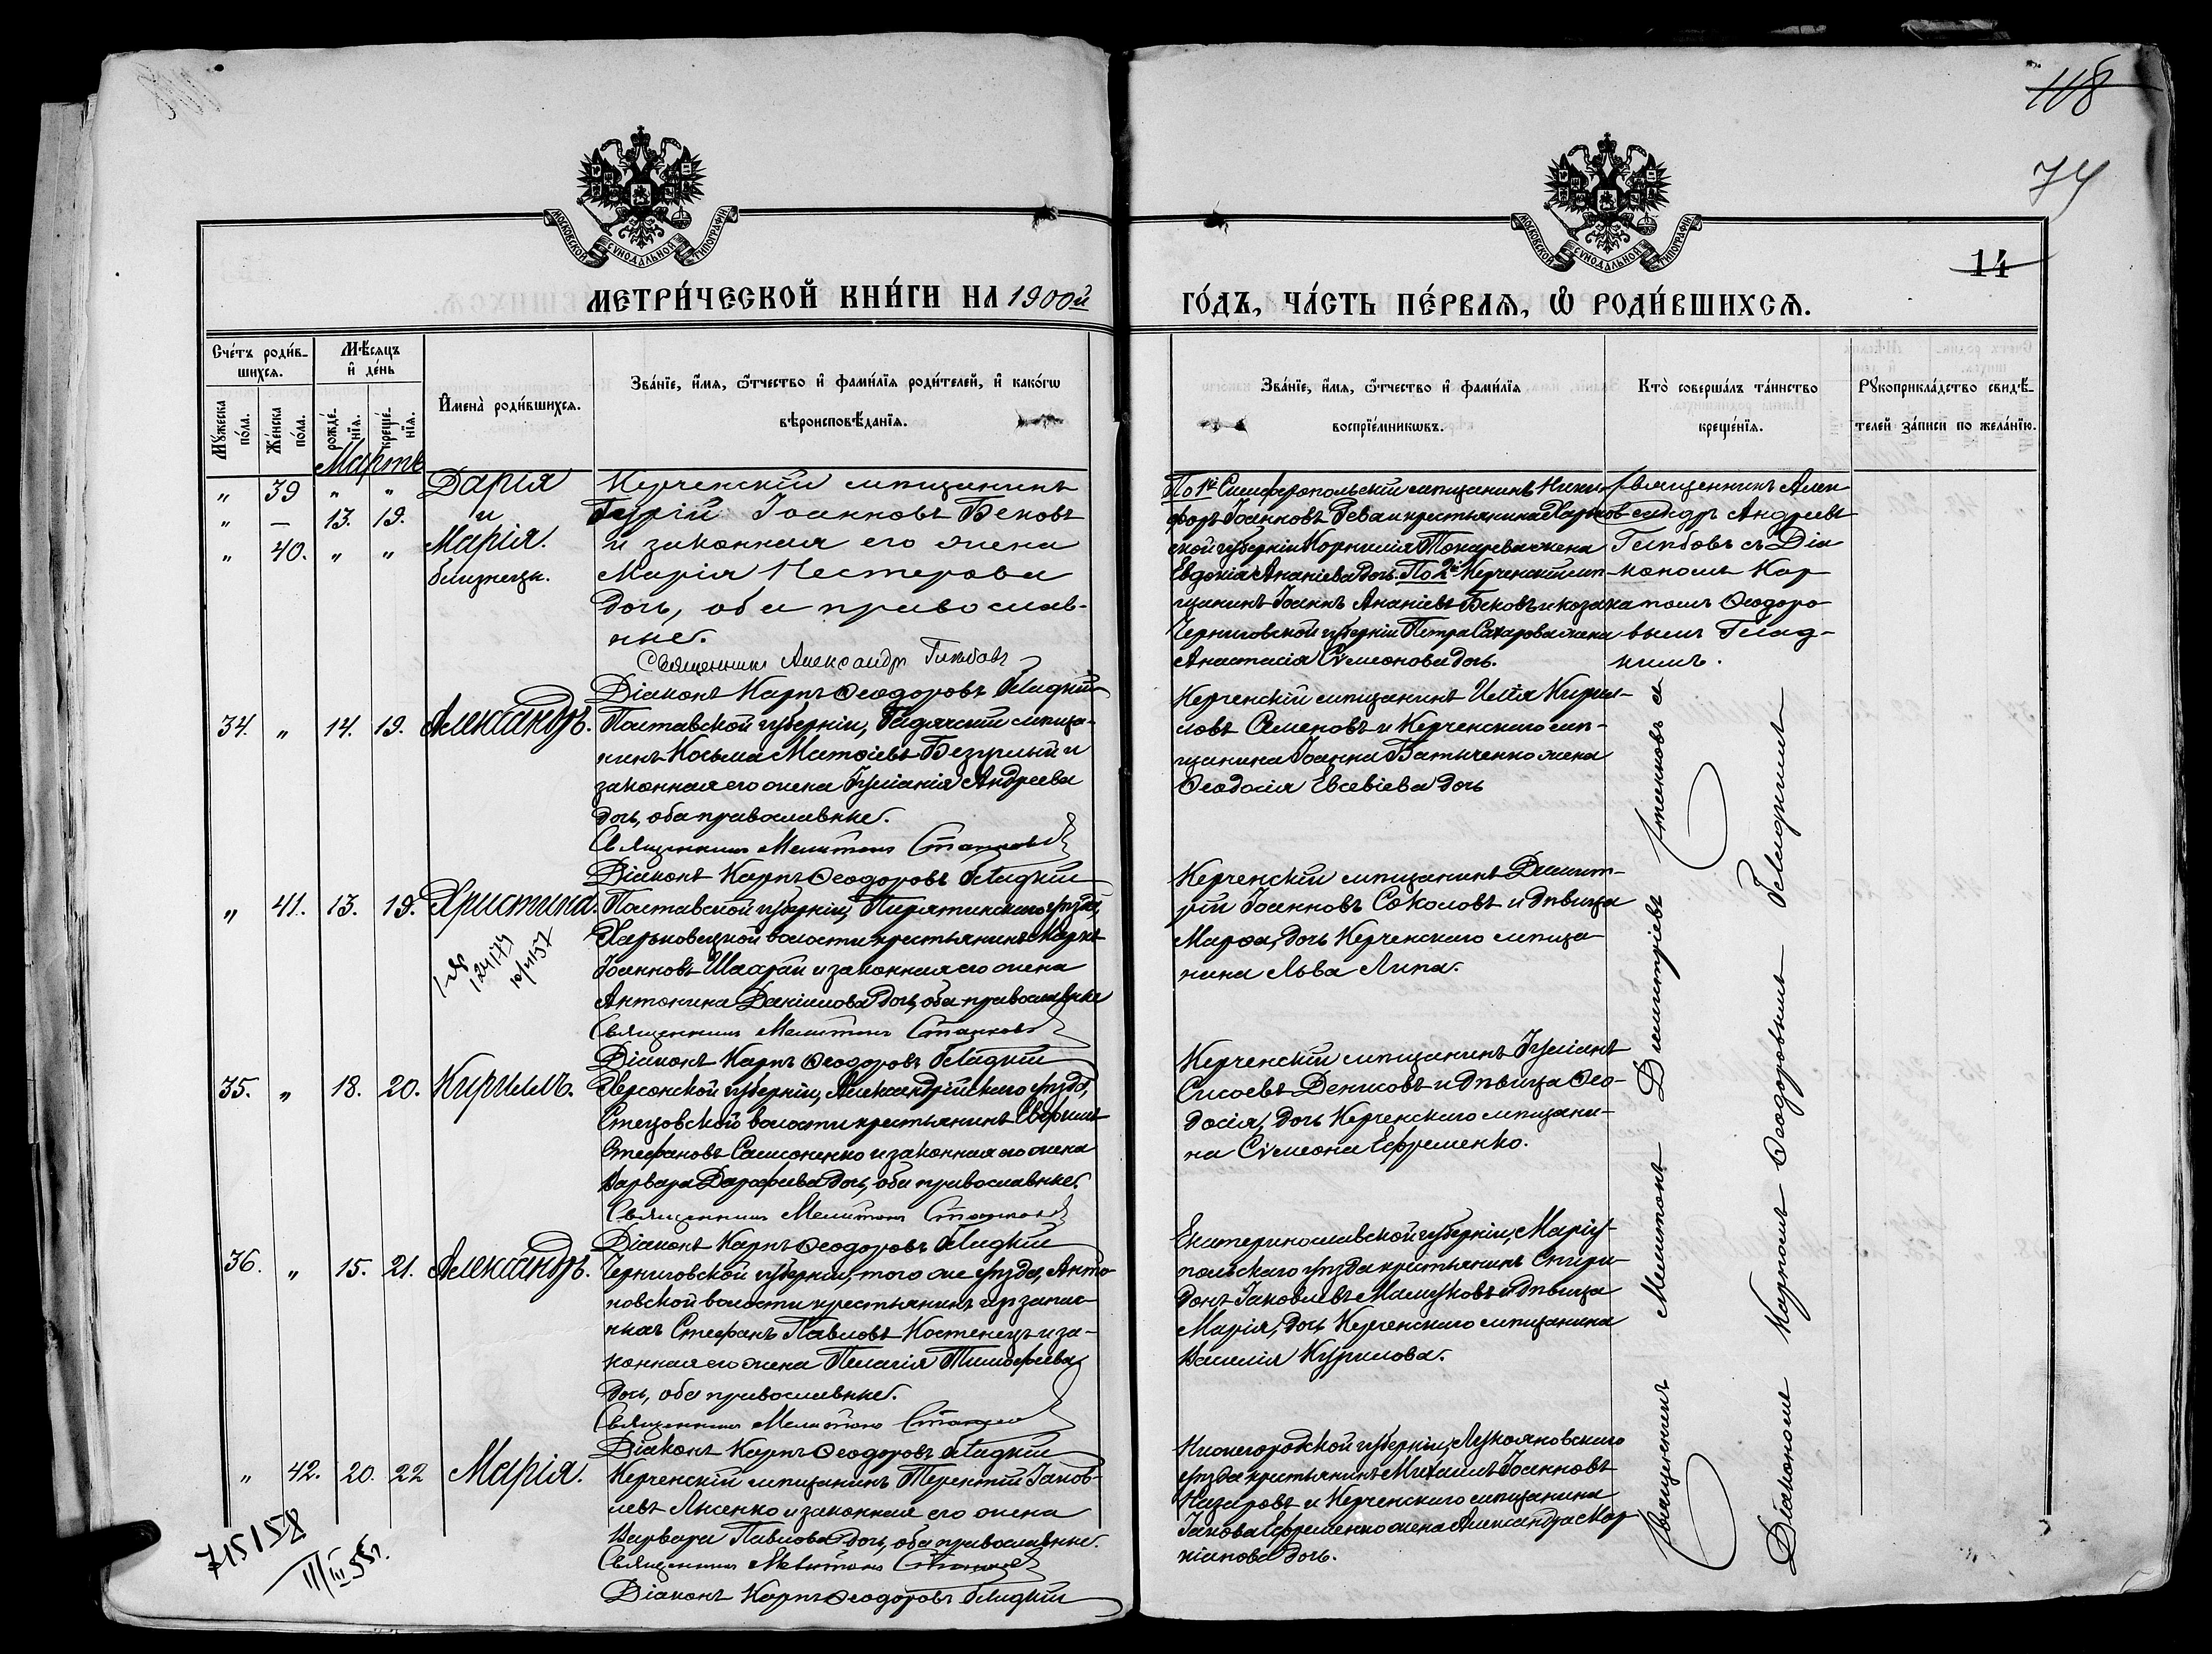 118
74
МОСКОВСКОЙ СѴНОДАЛЬНОЙ ТИПОГРАФІИ
МОСКОВСКОЙ СѴНОДАЛЬНОЙ ТИПОГРАФІИ
14
МЕТРИ́ЧЕСКОЙ КНИ́ГИ НА 1900й
ГО́ДЪ, ЧА́СТЬ ПЕ́РВАѦ, Ѡ҆ РОДИ́ВШИХСѦ.
Сче́тъ роди́в-
шихсѧ.
Мꙋ́жеска по́ла.
Же́нска по́ла.
Мѣ́сѧцъ
и҆ де́нь
рожде́-
нїѧ.
креще́-
нїѧ.
И҆мена̀ роди́вшихсѧ.
Зва́нїе, и҆́мѧ, ѻ҆́тчество и҆ фами́лїѧ роди́телей, и҆ како́гѡ
вѣроисповѣ́данїѧ.
Зва́нїе, и҆́мѧ, ѻ҆́тчество и҆ фами́лїѧ
воспрїе́мникѡвъ.
Кто̀ соверша́лъ та́инство
креще́нїѧ.
Рꙋкоприкла́дство свидѣ́-
телей за́писи по жела́нїю.
Мартъ
" 39 " " Дарія
" — 13. 19. и
" 40. " " Марія.
близнецы.
Керченскій мѣщанинъ
Гурій Іоанновъ Бековъ
и законная его жена
Марія Нестерова
дочь, оба православ-
ные.
Священникъ Александр Гилѣбовъ
Діаконъ Карпъ Ѳеодоровъ Гладкій
По 1й Симферопольскій мѣщанинъ Ники-
форъ Іоанновъ Рева и крестьянина Харьков-
ской губерніи Корнилія Токарева жена
Евдокія Ананіева дочь. По 2й Керченскій мѣ-
щанинъ Іоаннъ Ананіевъ Бековъ и козака
Черниговской губерніи Петра Сахарова жена
Анастасія Сѵмеонова дочь.
Священникъ Алек-
сандръ Андреевъ
Гилѣбовъ съ Діа-
кономъ Кар-
помъ Ѳеодоро-
вымъ Глад-
кимъ.
34. " 14. 19. Александръ.
Полтавской губерніи, Гадячскій мѣща-
нинъ Косьма Матѳіевъ Безуглый и
законная его жена Іуліанія Андреева
дочь, оба православные.
Священникъ Мелитонъ Станковъ
Діаконъ Карпъ Ѳеодоровъ Гладкій
Керченскій мѣщанинъ Илія Кирил-
ловъ Семеновъ и Керченскаго мѣ-
щанина Іоанна Батыченко жена
Ѳеодосія Евсевіева дочь
" 41. 13. 19. Христина.
124174
Полтавской губерніи, Пирятинскаго уѣзда,
Харьковецкой волости крестьянинъ Маркъ
Іоанновъ и законная его жена
Антонина Даніилова дочь, оба православные
Священникъ Мелитонъ Станковъ
Діаконъ Карпъ Ѳеодоровъ Гладкій
Керченскій мѣщанинъ Димит-
рій Іоанновъ Соколовъ и дѣвица
Марѳа, дочь Керченскаго мѣща-
нина Льва Липа.
35. " 18. 20. Кириллъ.
Херсонской губерніи, Александрійскаго уѣзда,
Стецовской волости крестьянинъ Евфимъ
Стефановъ Самсоненко и законная его жена
Варвара Дорофеева дочь, оба православные.
Священникъ Мелитонъ Станковъ
Діаконъ Карпъ Ѳеодоровъ Гладкій
Керченскій мѣщанинъ Іуліанъ
Сисоевъ Денисовъ и дѣвица Ѳео-
досія, дочь Керченскаго мѣщани-
на Сѵмеона Ефременко.
36. " 15. 21. Александръ.
Черниговской губерніи, того же уѣзда, Анто-
новской волости крестьянинъ из запас-
ныхъ Стефанъ Павловъ Костенецъ и за-
конная его жена Пелагія Тимофеева
дочь, оба православные.
Священникъ Мелитонъ Станковъ
Діаконъ Карпъ Ѳеодоровъ Гладкій
Екатеринославской губерніи, Маріу-
польскаго уѣзда крестьянинъ Спири-
донъ Іаковлевъ Мамуковъ и дѣвица
Марія, дочь Керченскаго мѣщанина
Василія Курилова.
" 42. 20. 22 Марія.
Керченскій мѣщанинъ Терентій Іаков-
левъ Лысенко и законная его жена
Варвара Павлова дочь, оба православные.
Священникъ Мелитонъ Станковъ
Діаконъ Карпъ Ѳеодоровъ Гладкій
Нижегородской губерніи, Лукояновскаго
уѣзда крестьянинъ Михаилъ Іоанновъ
Назаровъ и Керченскаго мѣщанина
Іакова Ефременко жена Александра Мар-
кіанова дочь.
Священникъ Мелитонъ Димитріевъ Станковъ съ
Діакономъ Карпомъ Ѳеодоровымъ Гладкимъ
715158
11/III 55г.